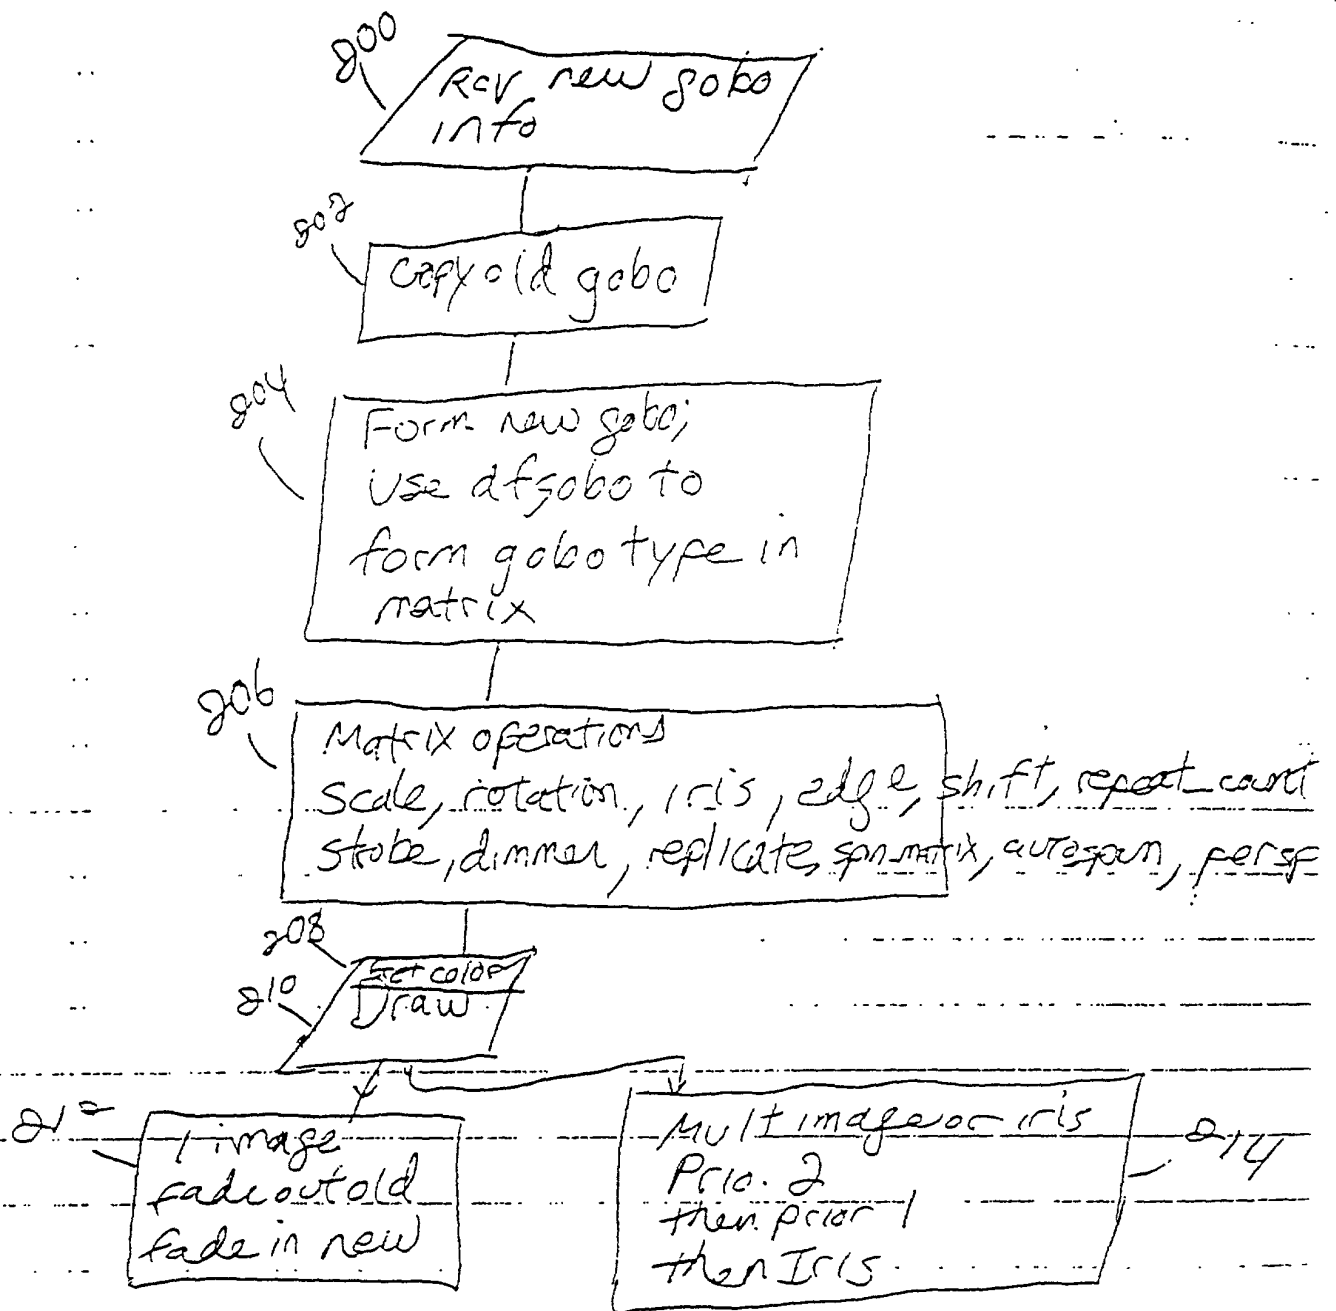 800
Rcv new gobo
info
802
copy old gobo
804
Form new gobo;
use dfgobo to
form gobo type in
matrix
806
Matrix operations
scale, rotation, iris, edge, shift, repeat_count
strobe, dimmer, replicate, spn_matrix, autospin, persp
808
Set color
810
Draw
812
1 image
fade out old
fade in new
Mult image or iris
Prio. 2
then prior 1
then Iris
814